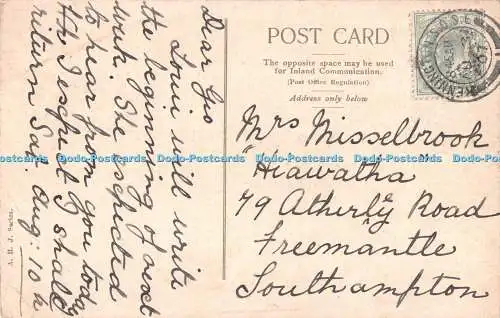 POST CARD
The opposite space may be used
for Inland Communication.
(Post Office Regulation)
Address only below
Dear Geo
Louie will write
the beginning of next
week. She expected
to hear from you today
I expect I shall
return Sat. Aug: 10th
Mrs Misselbrook
"Hiawatha"
79 Atherley Road
Freemantle
Southampton
A. R. J. Surtees.
KENNINGTON S.O. S.E.
Dodo-Postcards Dodo-Postcards Dodo-Postcards Dodo-Postcards Dodo-Postcards